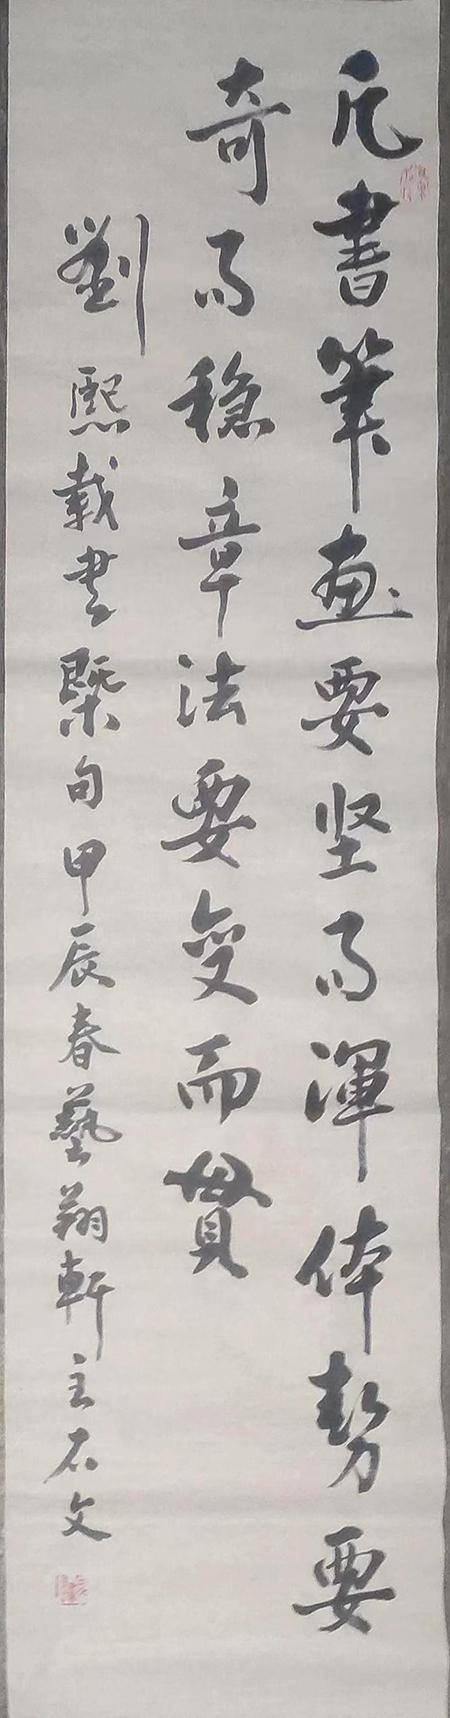 凡書筆畫要坚而渾体勢要
奇而穏章法要变而貫
劉熙載書槩句甲辰春藝翔軒主石文